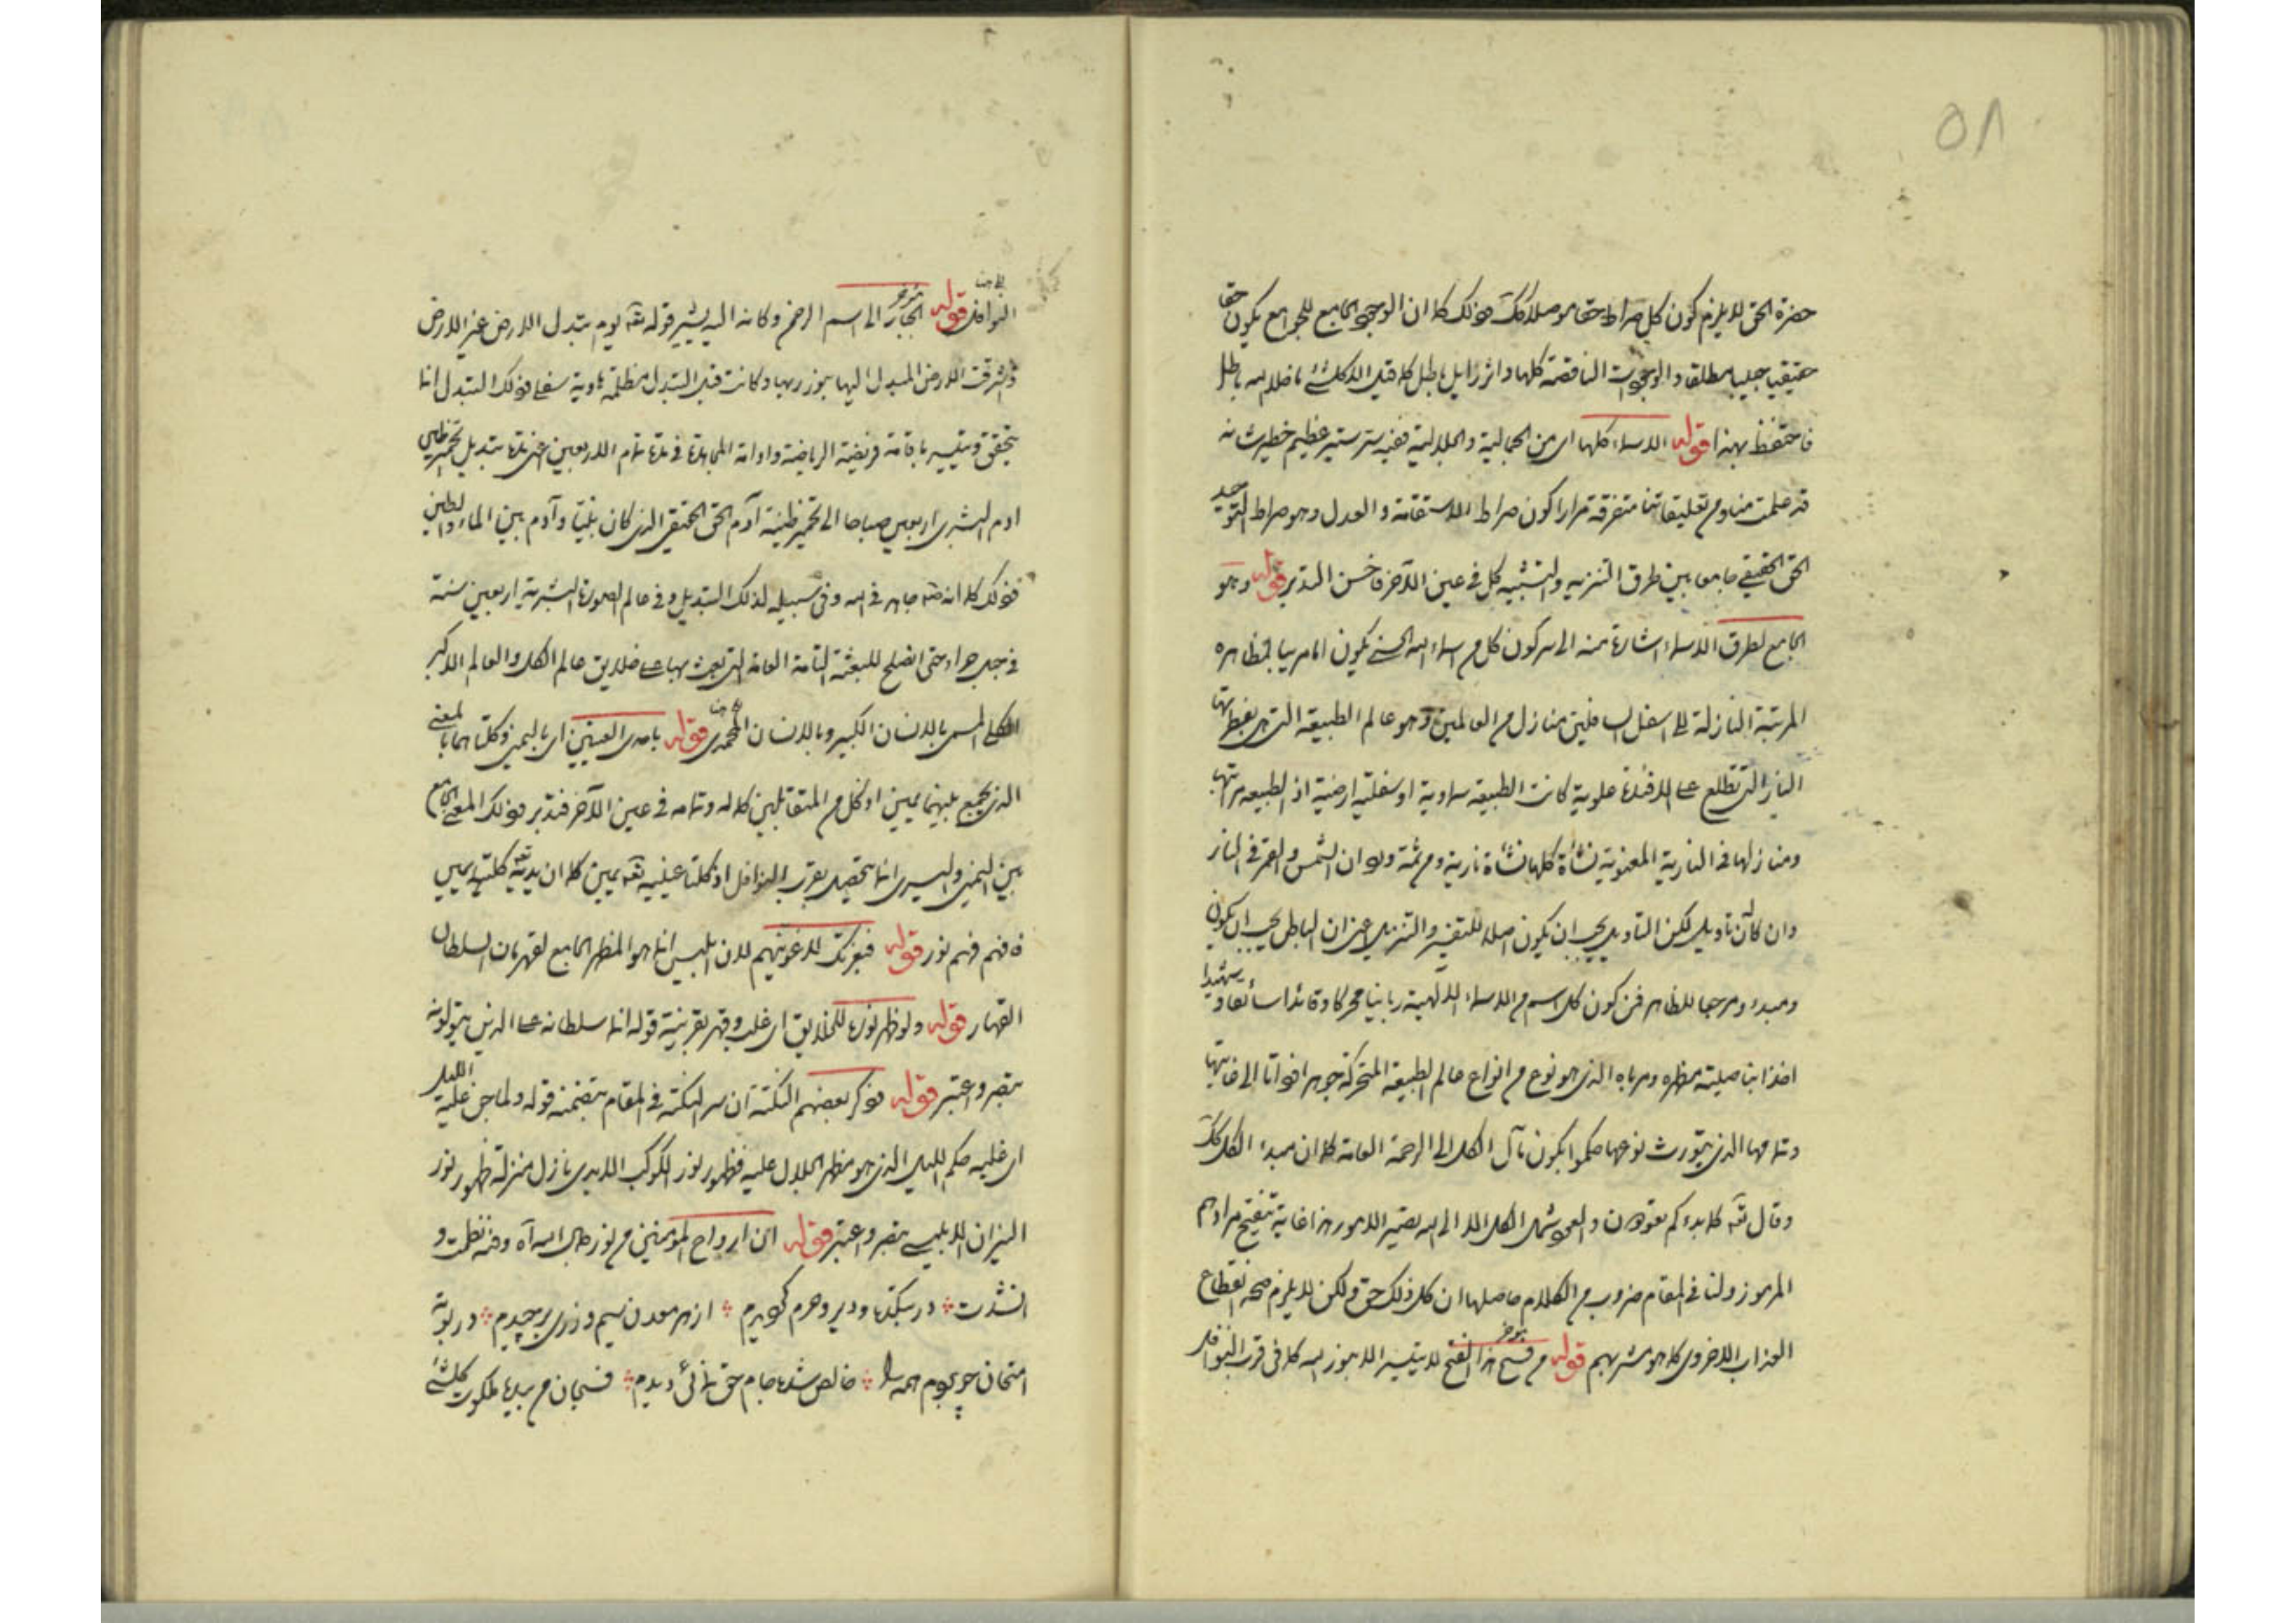 ٥٨
حضرة الحق لا يلزم كون كل صراط حقا موصلا وذلك كما ان الوجود الجامع للجوامع يكون حقا
حقيقيا جليا مطلقا والوجودات الناقصة كلها واثر زايل باطل كله قيل الا كل شئ ما خلا الله باطل
فاحتفظ بهذا قوله الاسماء كلها اى من الجمالية والجلالية ففيه ستر ستير عظيم خطير شانه
قد علمت منا ومن تعليقاتنا متفرقة مرارا كون صراط الاستقامة والعدل وهو صراط التوحيد
الحق الحقيقى جامعا بين طرق التنزيه والتشبيه كل فى عين الآخر فاحسن التدبر قوله وهو
الجامع لطرق الاسماء اشارة منه الى سر كون كل من اسماء الله الحسنى يكون اما مربيا لمظاهره
المرتبة النازلة الى اسفل السافلين منازل من العالمين وهو عالم الطبيعة التى هى بفطرتها
النار التى تطلع على الافئدة علوية كانت الطبيعة سماوية او سفلية ارضية اذ الطبيعة مراتبها
ومنازلها فى النارية المعنوية نشأة كلها نشأة نارية ومن ثمة ورد ان الشمس والقمر فى النار
وان كان له تأويل لكن التأويل يجب ان يكون اصله للتفسير والتنزيل اعنى ان الباطن يجب ان يكون
ومبدء ومرجعا للظاهر فمن كون كل اسم من الاسماء الالهية ربانيا محركا وقائدا سائقا و شهيدا
اخذا بناصية مظهره ومرباه الذى هو نوع من انواع عالم الطبيعة المتحركة جوهرا وذاتا الى غايتها
وتمامها الذى يتورث نوعها حكموا بكون مآل الكل الى الرحمة العامة كما ان مبدء الكل كذلك
وقال تعالى كما بدءكم تعودون والعموم شمل الكل الا الى الله تصير الامور هذا غاية تنقيح مرادهم
المرموز ولنا فى المقام ضروب من الكلام حاصلها ان كل ذلك حق ولكن لا يلزم منه انقطاع
العذاب الاخروى كما هو مشربهم قوله من فسح هذا الفتح لا يتيسر الا بنور الله كما فى قرب النوافل
النوافل قوله الجبار الى اسم الرحمن وكانه اليه يشير قوله تعالى يوم تبدل الارض غير الارض
واشرقت الارض المبدل اليها بنور ربها وكانت قبل التبدل مظلمة هاوية سفلى فذلك التبدل انما
يتحقق ويتيسر باقامة فريضة الرياضة وادامة المجاهدة فى مدة تمام الاربعين اعنى مدة تبديل تخمير طين
ادم البشرى اربعين صباحا الى تخمير طينة آدم الحق الحقيقى الذى كان نبيا وآدم بين الماء والطين
فذلك كما انه جاهد فى الله وفى سبيله لذلك التبديل وفى عالم الصورة البشرية اربعين سنة
فى جبل حراء حتى انصلح للبعثة التامة العامة التى بعث بها على خلايق عالم الكل والعالم الاكبر
الكلى المسمى بالانسان الكبير وبالانسان المحمدى قوله باحدى العينين اى باليمنى وكلتاهما بالمعنى
الذى يجمع بينهما يمين اذ كل من المتقابلين كماله وتمامه فى عين الآخر فتدبر فذلك المعنى الجامع
بين اليمنى واليسرى انما يتحصل بقرب النوافل اذ كلتا عينيه تعالى يمين كما ان يديه كلتيه يمين
فافهم فهم نور قوله فبعزتك لاغوينهم لان ابليس انما هو المظهر الجامع لقهرمان السلطان
القهار قوله ولو ظهر نوره للخلايق اى غلب وقهر بقرينة قوله انما سلطانه على الذين يتولونه
تبصر واعتبر قوله فذكر بعضهم النكتة ان سر النكتة فى المقام يتضمنه قوله ولما جن عليه الليل
اى غلبه حكم الليل الذى هو مظهر الجلال عليه فظهور نور الكوكب اللابدى نازل منزلة ظهور نور
النيران الابليسى تبصر واعتبر قوله ان ارواح المؤمنين من نور جمال الله آه وقد نظمت و
انشدت ؞ در بتكده و دير و حرم گرديدم ؞ از هر معدن سيم و زرى برچيدم ؞ در بوته
امتحان چو بردم همه را ؞ خالص شده جام حق نمائى ديدم ؞ فسبحان من بيده ملكوت كل شئ